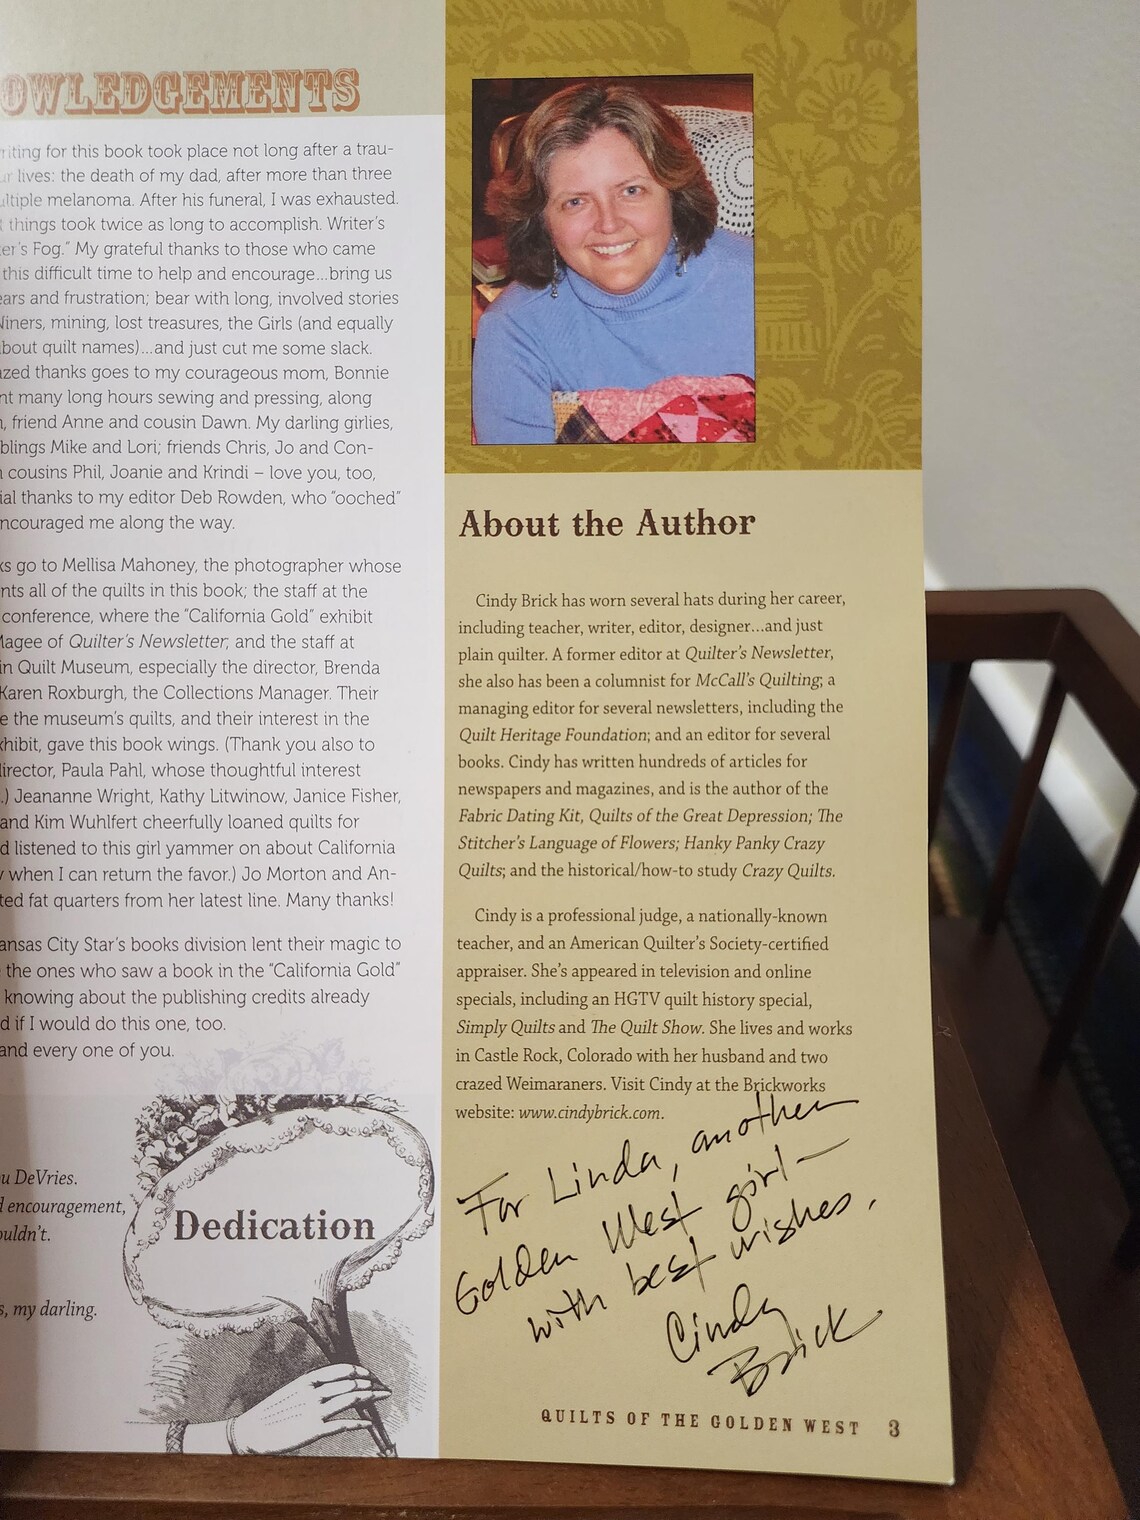 OWLEDGEMENTS
riting for this book took place not long after a trau-
ur lives: the death of my dad, after more than three
ultiple melanoma. After his funeral, I was exhausted.
t things took twice as long to accomplish. Writer's
er's Fog." My grateful thanks to those who came
this difficult time to help and encourage...bring us
ears and frustration; bear with long, involved stories
iners, mining, lost treasures, the Girls (and equally
bout quilt names)...and just cut me some slack.
zed thanks goes to my courageous mom, Bonnie
nt many long hours sewing and pressing, along
, friend Anne and cousin Dawn. My darling girlies,
blings Mike and Lori; friends Chris, Jo and Con-
cousins Phil, Joanie and Krindi – love you, too,
ial thanks to my editor Deb Rowden, who "ooched"
ncouraged me along the way.
ks go to Mellisa Mahoney, the photographer whose
nts all of the quilts in this book; the staff at the
conference, where the "California Gold" exhibit
Magee of Quilter's Newsletter; and the staff at
in Quilt Museum, especially the director, Brenda
Karen Roxburgh, the Collections Manager. Their
e the museum's quilts, and their interest in the
xhibit, gave this book wings. (Thank you also to
irector, Paula Pahl, whose thoughtful interest
.) Jeananne Wright, Kathy Litwinow, Janice Fisher,
and Kim Wuhlfert cheerfully loaned quilts for
d listened to this girl yammer on about California
y when I can return the favor.) Jo Morton and An-
ted fat quarters from her latest line. Many thanks!
ansas City Star's books division lent their magic to
the ones who saw a book in the "California Gold"
knowing about the publishing credits already
d if I would do this one, too.
and every one of you.
u DeVries.
d encouragement,
ouldn't.
s, my darling.
Dedication
About the Author
Cindy Brick has worn several hats during her career,
including teacher, writer, editor, designer...and just
plain quilter. A former editor at Quilter's Newsletter,
she also has been a columnist for McCall's Quilting; a
managing editor for several newsletters, including the
Quilt Heritage Foundation; and an editor for several
books. Cindy has written hundreds of articles for
newspapers and magazines, and is the author of the
Fabric Dating Kit, Quilts of the Great Depression; The
Stitcher's Language of Flowers; Hanky Panky Crazy
Quilts; and the historical/how-to study Crazy Quilts.
Cindy is a professional judge, a nationally-known
teacher, and an American Quilter's Society-certified
appraiser. She's appeared in television and online
specials, including an HGTV quilt history special,
Simply Quilts and The Quilt Show. She lives and works
in Castle Rock, Colorado with her husband and two
crazed Weimaraners. Visit Cindy at the Brickworks
website: www.cindybrick.com.
For Linda, another
Golden West girl –
with best wishes,
Cindy
Brick
QUILTS OF THE GOLDEN WEST 3